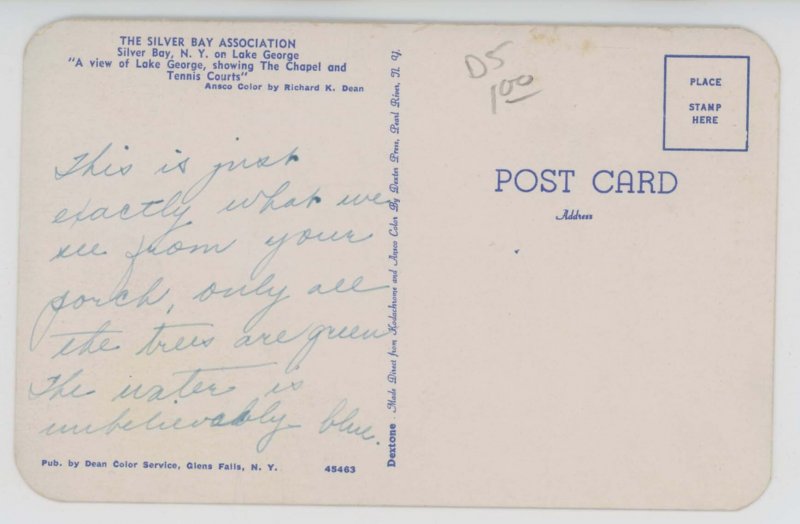 THE SILVER BAY ASSOCIATION
Silver Bay, N. Y. on Lake George
"A view of Lake George, showing The Chapel and
Tennis Courts"
Ansco Color by Richard K. Dean
This is just
exactly what we
see from your
porch, only all
the trees are green
The water is
unbelievably blue.
Pub. by Dean Color Service, Glens Falls, N. Y.
45463
Dextone - Made Direct from Kodachrome and Ansco Color By Dexter Press, Pearl River, N. Y.
D5
1.00
PLACE
STAMP
HERE
POST CARD
Address